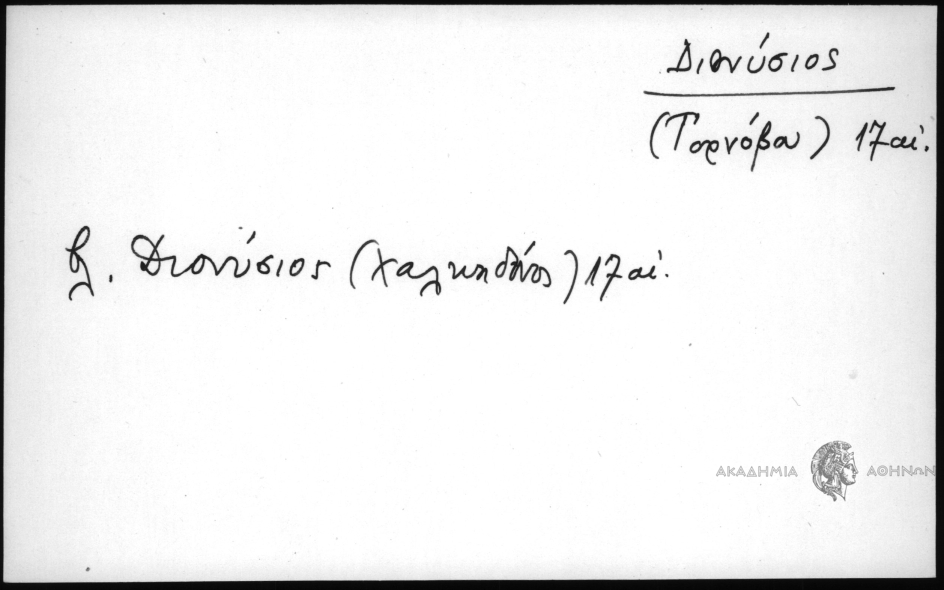 Διονύσιος
(Τορνόβου) 17 αἰ.
βλ. Διονύσιος (Χαλκηδόνος) 17 αἰ.
ΑΚΑΔΗΜΙΑ ΑΘΗΝΩΝ